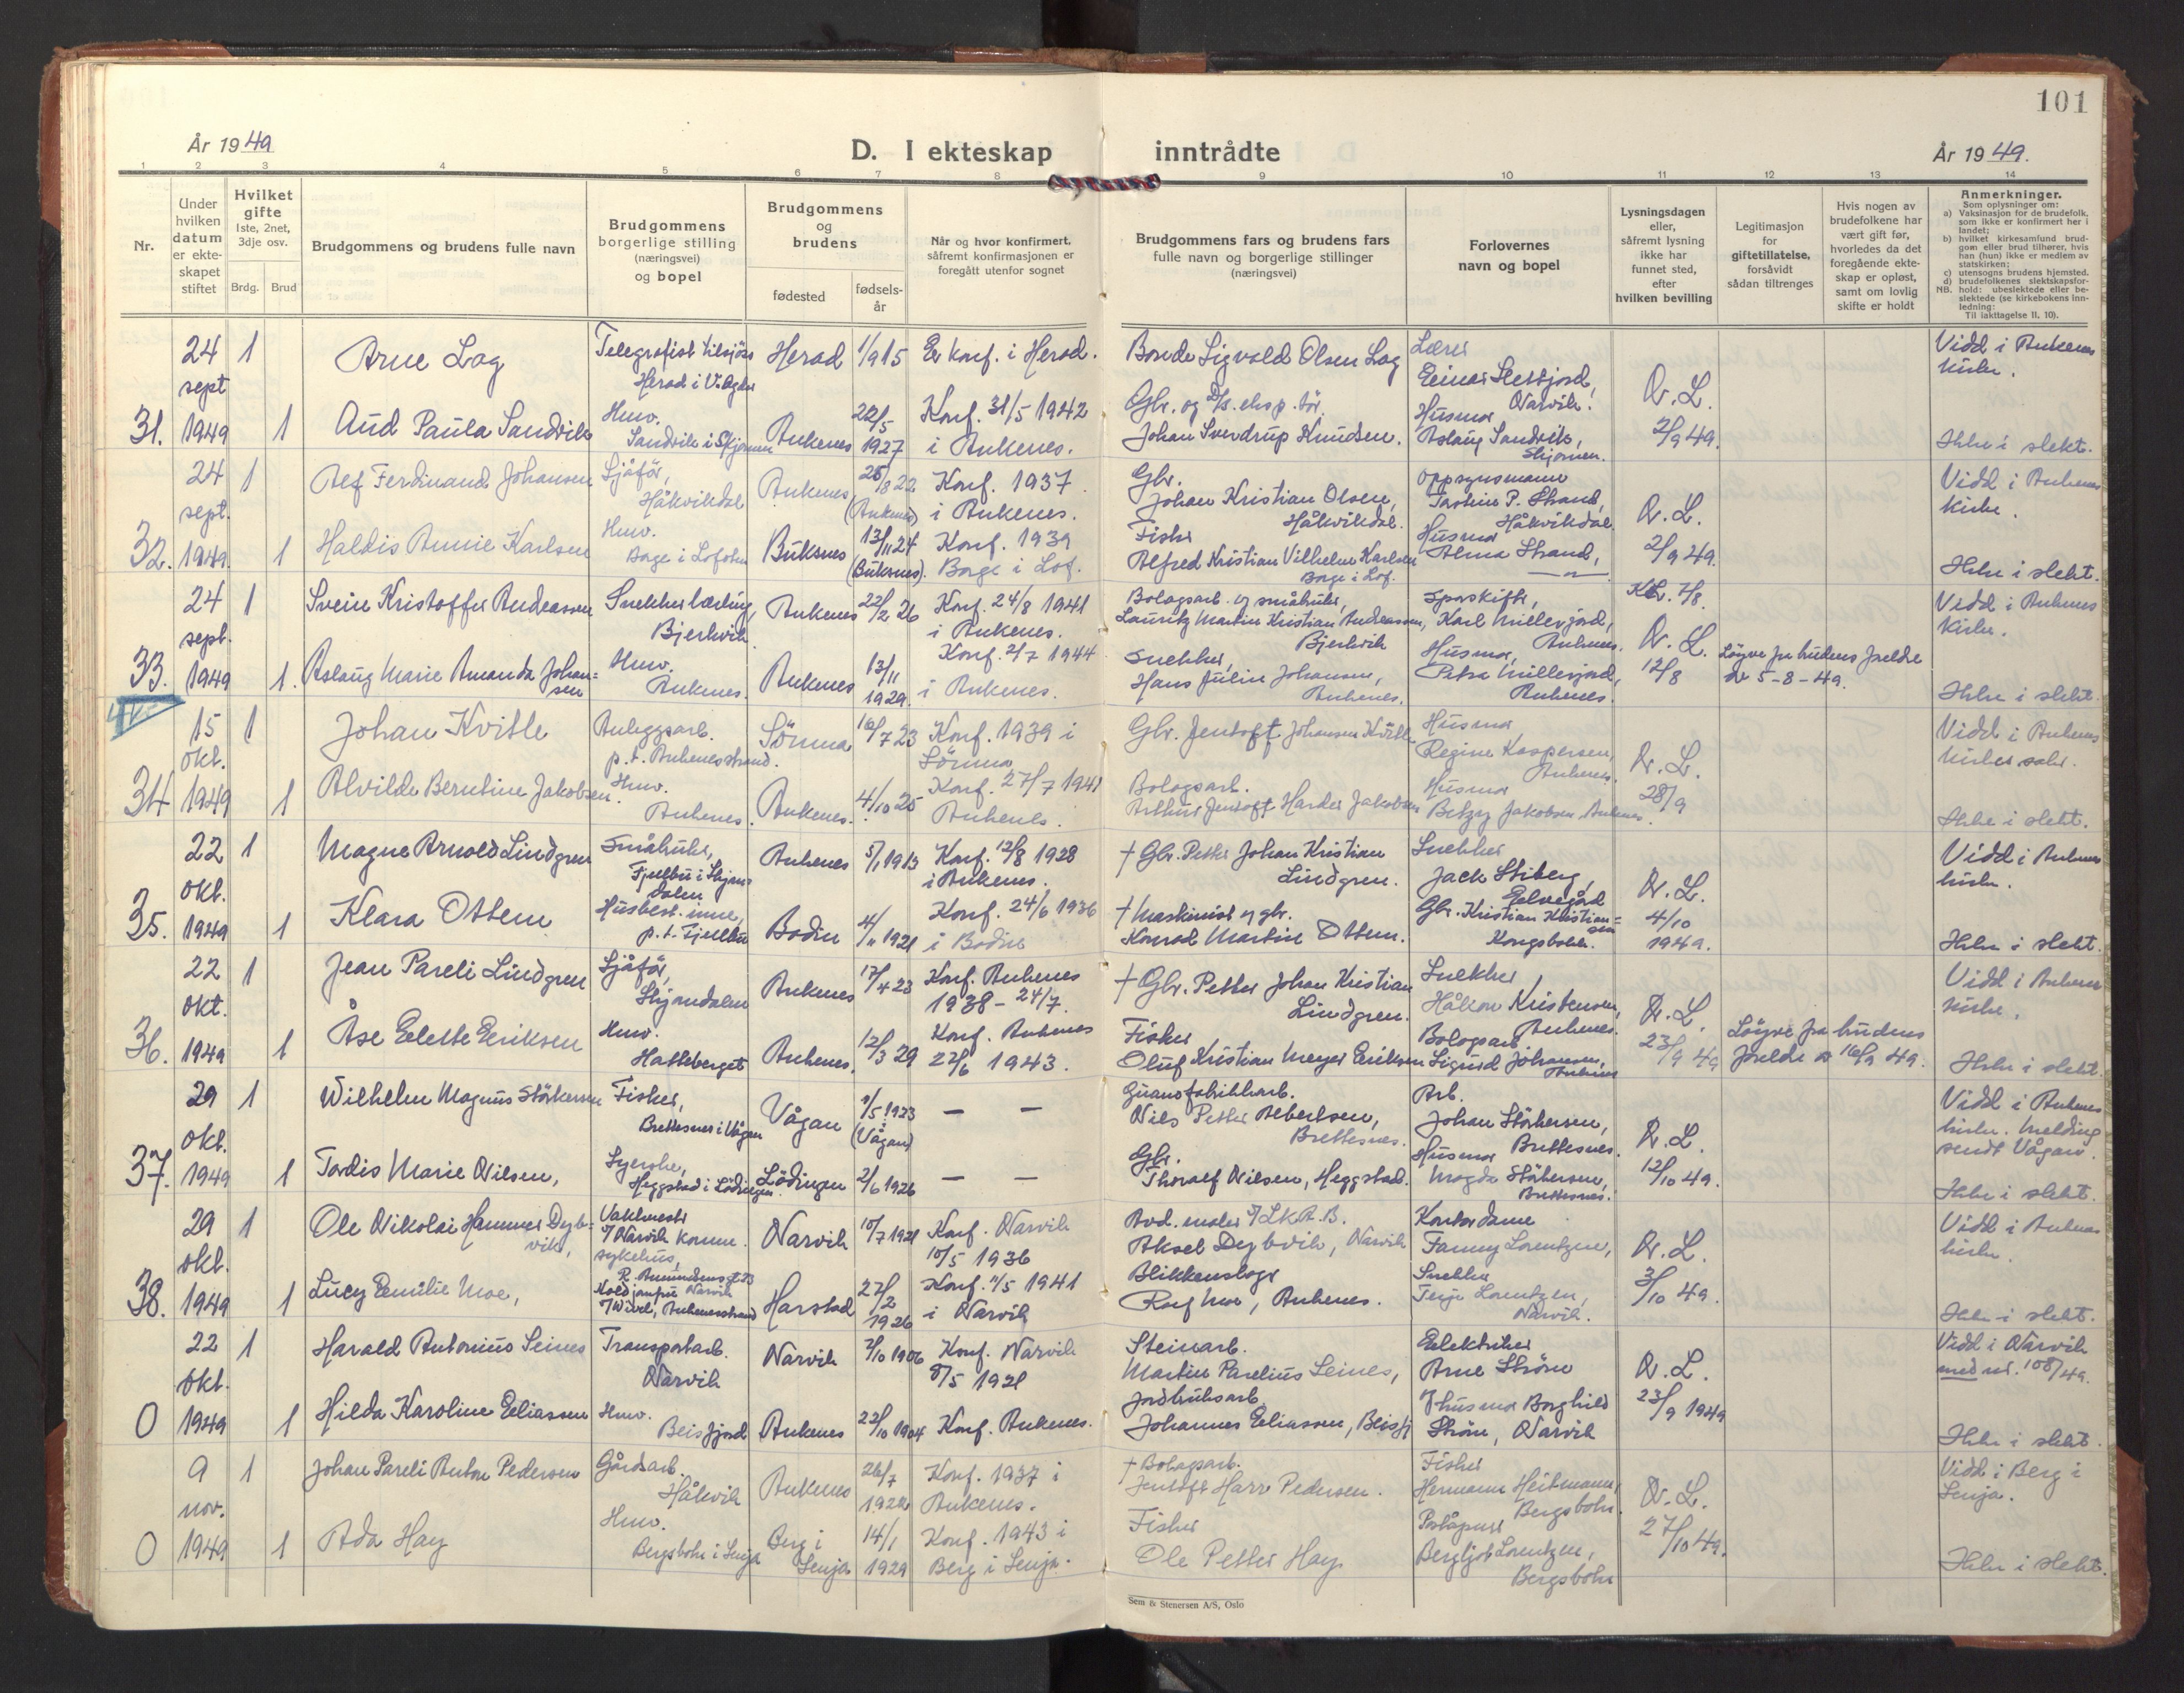 101
År 1949
D. I ekteskap inntrådte
År 1949.
1 2 3 4 5 6 7 8 9 10 11 12 13 14
Nr.
Under
hvilken
datum
er ekte-
skapet
stiftet
Hvilket
gifte
1ste, 2net,
3dje osv.
Brdg. Brud
Brudgommens og brudens fulle navn
Brudgommens
borgerlige stilling
(næringsvei)
og bopel
Brudgommens
og
brudens
fødested
fødsels-
år
Når og hvor konfirmert,
såfremt konfirmasjonen er
foregått utenfor sognet
Brudgommens fars og brudens fars
fulle navn og borgerlige stillinger
(næringsvei)
Forlovernes
navn og bopel
Lysningsdagen
eller,
såfremt lysning
ikke har
funnet sted,
efter
hvilken bevilling
Legitimasjon
for
giftetillatelse,
forsåvidt
sådan tiltrenges
Hvis nogen av
brudefolkene har
vært gift før,
hvorledes da det
foregående ekte-
skap er opløst,
samt om lovlig
skifte er holdt
Anmerkninger.
Som oplysninger om:
a) Vaksinasjon for de brudefolk,
som ikke er konfirmert her i
landet;
b) hvilket kirkesamfund brud-
gom eller brud tilhører, hvis
han (hun) ikke er medlem av
statskirken;
c) utensogns brudens hjemsted.
d) brudefolkenes slektskapsfor-
NB. hold: ubeslektede eller be-
slektede (se kirkebokens inn-
ledning:
Til iakttagelse II, 10).
31. 24 sept 1949
1 Arne Log
Telegrafist tilsjøs
Herad i V. Agder
Herad 1/9 15
Er konf. i Herad.
Bonde Sigvald Olsen Log
Lærer
Einar Slettjord,
Narvik.
Vidd i Ankenes
kirke.
1 Aud Paula Sandvik
Hmv.
Sandvik i Skjomen
Ankenes 22/5 1927
Konf. 31/5 1942
i Ankenes.
Gbr. og D/S. eksp. tör
Johan Sverdrup Knudsen.
Husmor
Aslaug Sandvik,
Skjomen.
N. L.
2/9 49.
Ikke i slekt.
32. 24 sept. 1949.
1 Alf Ferdinand Johansen
Sjåför,
Håkvikdal
Ankenes 25/8 22
(Ankenes)
Konf. 1937
i Ankenes.
Gbr.
Johan Kristian Olsen,
Håkvikdal.
Oppsynsmann
Torstein P. Strand,
Håkvikdal
Vidd i Ankenes
kirke.
1 Haldis Annie Karlsen
Hmv.
Borge i Lofoten
Buksnes 13/11 24
(Buksnes).
Konf. 1939
Borge i Lof.
Fisker
Alfred Kristian Vilhelm Karlsen
Borge i Lof.
Husmor
Alma Strand,
— " —
N. L.
2/9 49.
Ikke i slekt.
33. 24 sept. 1949
1 Svein Kristoffer Andreassen
Snekkerlærling,
Bjerkvik
Ankenes 22/2 26
Konf. 24/8 1941
i Ankenes.
Bolagsarb. og småbruker,
Lauritz Martin Kristian Andreassen,
Bjerkvik
Sporskifter,
Karl Millerjord,
Ankenes.
Vidd i Ankenes
kirke.
1. Aslaug Marie Amanda Johan-
sen
Hmv.
Ankenes.
Ankenes 13/11 1929.
Konf. 2/7 1944
i Ankenes.
Snekker,
Hans Julin Johansen,
Ankenes.
Husmor,
Petra Millerjord,
Ankenes.
N. L.
12/8
Löyve fra brudens foreldre
av 5-8-49.
Ikke i slekt.
34 15 okt. 1949
1 Johan Kvitle
Anleggsarb.
p.t. Ankenesstrand.
Sörum 16/7 23
Konf. 1939 i
Sörum
Gbr. Jentoft Johansen Kvitle
Husmor
Regine Kaspersen,
Ankenes.
Vidd i Ankenes
kirkes sakr.
1 Alvilde Berntine Jakobsen.
Hmv.
Ankenes.
Ankenes. 4/10 25
Konf. 27/7 1941
Ankenes.
Bolagsarb.
Arthur Jentoft Harder Jakobsen
Husmor
Betzy Jakobsen Ankenes.
N. L.
28/9
Ikke i slekt.
35. 22 okt. 1949
1 Magne Arnold Lindgren
Småbruker,
Fjellbu i Skjom-
dalen
Ankenes 5/1 1913
Konf. 12/8 1928
i Ankenes.
† Gbr. Petter Johan Kristian
Lindgren.
Snekker
Jack Stiberg,
Elvegård
Vidd i Ankenes
kirke.
1 Klara Ottem
Husbest.inne,
p.t. Fjellbu
Bodin 4/11 1921
Konf. 24/6 1936
i Bodin
† Maskinist og gbr.
Konrad Martin Ottem.
Gbr. Kristian Kristian-
sen
Kongsbakk.
N. L.
4/10
1949.
Ikke i slekt.
36. 22 okt. 1949
1 Jean Pareli Lindgren
Sjåför,
Skjomdalen
Ankenes 17/4 23
Konf. Ankenes
1938 - 24/7.
† Gbr. Petter Johan Kristian
Lindgren.
Snekker,
Håkon Kristensen,
Ankenes.
Vidd i Ankenes
kirke.
1 Åse Elette Eriksen
Hmv.
Hatteberget
Ankenes. 12/3 29
Konf. Ankenes
27/6 1943.
Fisker
Oluf Kristian Meyer Eriksen
Bolagsarb.
Sigurd Johansen,
Ankenes
N. L.
23/9 49
Löyve fra brudens
foreldre av 16/9 49.
Ikke i slekt.
37. 29 okt. 1949
1 Wilhelm Magnus Störkersen
Fisker,
Brettesnes i Vågan
Vågan 1/5 1923
(Vågan)
— —
Guanofabrikkarb.
Nils Petter Albertsen,
Brettesnes.
Arb.
Johan Störkersen,
Brettesnes.
Vidd i Ankenes
kirke. Melding
sendt Vågan.
1 Tordis Marie Nilsen,
Syerske,
Heggstad i Lödingen
Lödingen 2/6 1926
— —
Gbr.
Thoralf Nilsen, Heggstad.
Husmor
Magda Störkersen,
Brettesnes.
N. L.
12/10 49.
Ikke i slekt.
38. 29 okt. 1949
1 Ole Nikolai Hammer Dybvik,
Vaktmester
v/ Narvik komm.
sykehus,
R. Amundsensgt 23
Narvik
Narvik 10/7 1921
Konf. Narvik
10/5 1936
Avd. maler v/ LKAB.
Aksel Dybvik, Narvik
Kontordame
Fanny Lorentzen,
Vidd i Ankenes
kirke.
1 Lucy Emilie Moe,
Koldjomfru
v/ Wivel, Ankenesstrand
Harstad 27/2 1926
Konf. 11/5 1941
i Narvik
Blikkenslager
Rolf Moe, Ankenes.
Snekker
Terje Lorentzen,
Narvik.
N. L.
3/10 49.
Ikke i slekt.
0 22 okt. 1949
1 Harald Antonius Leines
Transportarb.
Narvik
Narvik 2/10 1906
Konf. Narvik
8/5 1921
Steinarb.
Martin Parelius Leines,
Elektriker
Arne Ström
Vidd i Narvik
med nr. 108/49.
1 Hilda Karoline Eliassen
Hmv.
Beisfjord
Ankenes 22/10 1904
Konf. Ankenes.
Jordbruksarb
Johannes Eliassen, Beisfj
husmor Borghild
Ström, Narvik
N. L.
23/9 1949
Ikke i slekt.
0 9 nov. 1949
1 Johan Pareli Anton Pedersen
Gårdsarb.
Håkvik
Ankenes 26/7 1922
Konf. 1937 i
Ankenes.
† Bolagsarb.
Jentoft Harr Pedersen.
Fisker
Hermann Heitmann,
Bergsbotn.
Vidd i Berg i
Senja.
1 Ada Hay
Hmv.
Bergsbotn i Senja
Berg i
Senja 14/1 1929
Konf. 1943 i
Berg i Senja.
Fisker
Ole Petter Hay
Poståpner
Bergljot Lorentzen,
Bergsbotn
N. L.
27/10 49.
Ikke i slekt.
Sem & Stenersen A/S, Oslo